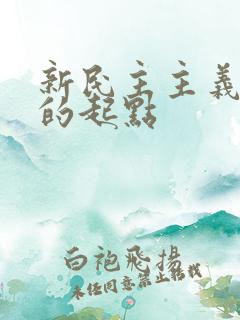 新民主主義
的起點
白袍飛揚
未经同意禁止转载